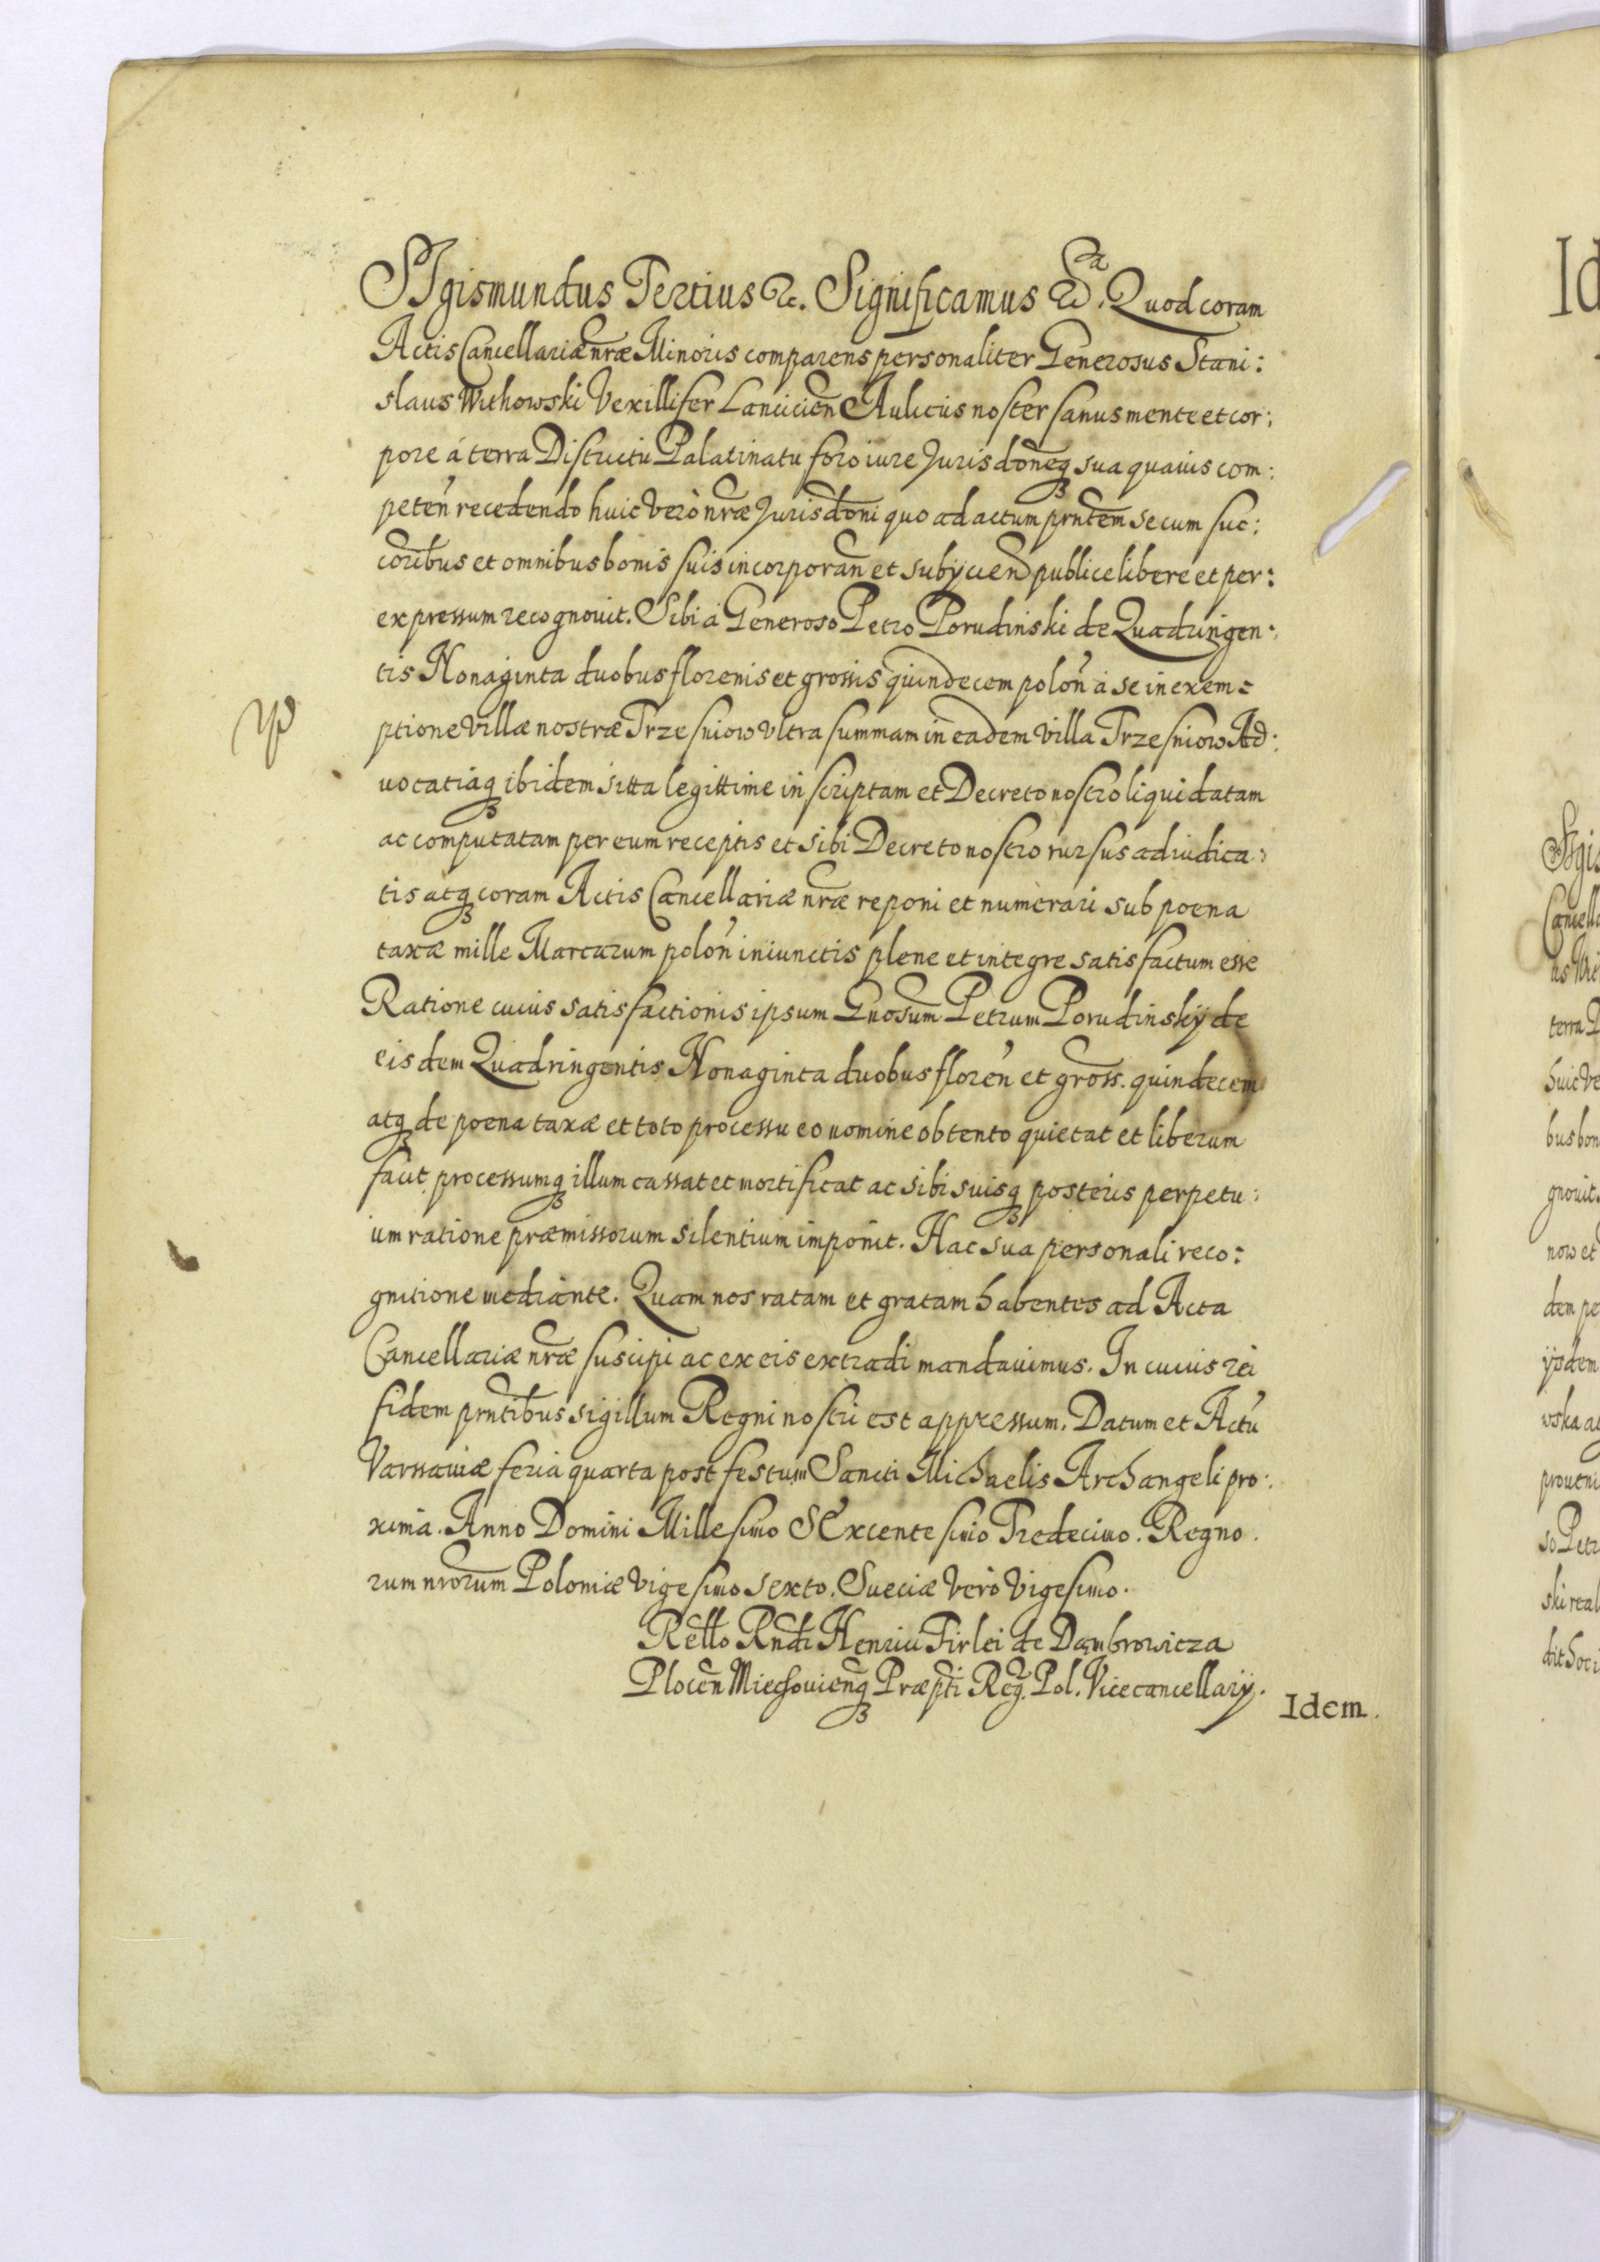 SIgismundus Tertius &c. Significamus &c. Quod coram
Actis Cancellariæ nr̃æ Minoris comparens personaliter Generosus Stani:
slaus Withowski Vexillifer Lancicien̄ Aulicus noster sanus mente et cor:
pore á terra Districtu Palatinatu foro iure Jurisdōneq3 sua quauis com:
peteñ recedendo huic verò nr̃æ Jurisdōni quo ad actum pr̃ntem se cum suc:
corib̃us et omnibus bonis suis incorporan̄ et subÿcien̄ publice libere et per:
expressum recognouit. Sibi á Generoso Petro Porudinski de Quadringen:
tis Nonaginta duobus florenis et grossis quindecem poloñ á se in exem:
ptione villæ nostræ Trzesniow vltra summam in eadem villa Trzesniow Ad:
uocatiaq3 ibidem sitta legittime inscriptam et Decreto nostro liquidatam
ac computatam per eum receptis et sibi Decreto nostro rursus adiudica:
tis atq3 coram Actis Cancellariæ nr̃æ reponi et numerari sub poena
taxæ mille Marcarum poloñ iniunctis plene et integre satisfactum esse
Ratione cuius satisfactionis ipsum Gnosum̄ Petrum Porudinskÿ de
eisdem Quadringentis Nonaginta duobus floreñ et gross. quindecem
atq3 de poena taxæ et toto processu eo nomine obtento quietat et liberum
facit processumq3 illum cassat et mortificat ac sibi suisq3 posteris perpetu:
um ratione præmissorum silentium imponit. Hac sua personali reco:
gnitione mediante. Quam nos ratam et gratam habentes ad Acta
Cancellariæ nr̃æ suscipi ac ex eis extradi mandauimus. In cuius rei
fidem pr̃ntib̃us sigillum Regni nostri est appressum. Datum et Actū
Varssauiæ feria quarta post festum Sancti Michaelis Archangeli pro:
xima. Anno Domini Millesimo SExcentesimo Tredecimo. Regno.
rum nr̃orum Poloniæ vigesimo sexto. Sueciæ verò vigesimo.
Rell̃o Rnd̃i Henrici Firlei de Dąmbrowicza
Plocen̄ Miechouien̄q3 Præpt̃i Reg. Pol. Vicecancellarÿ.
Idem.